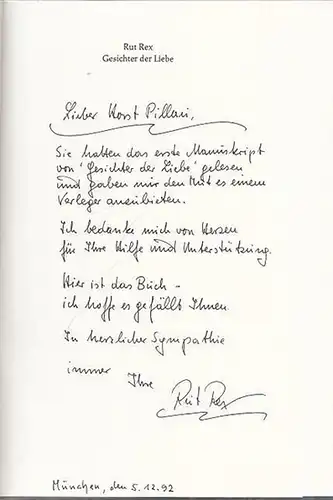 Rut Rex
Gesichter der Liebe
Lieber Horst Pillau,
Sie hatten das erste Manuskript
von 'Gesichter der Liebe' gelesen
und gaben mir den Mut es einem
Verleger anzubieten.
Ich bedanke mich von Herzen
für Ihre Hilfe und Unterstützung.
Hier ist das Buch –
ich hoffe es gefällt Ihnen.
In herzlicher Sympathie
immer Ihre
Rut Rex
München, den 5.12.92